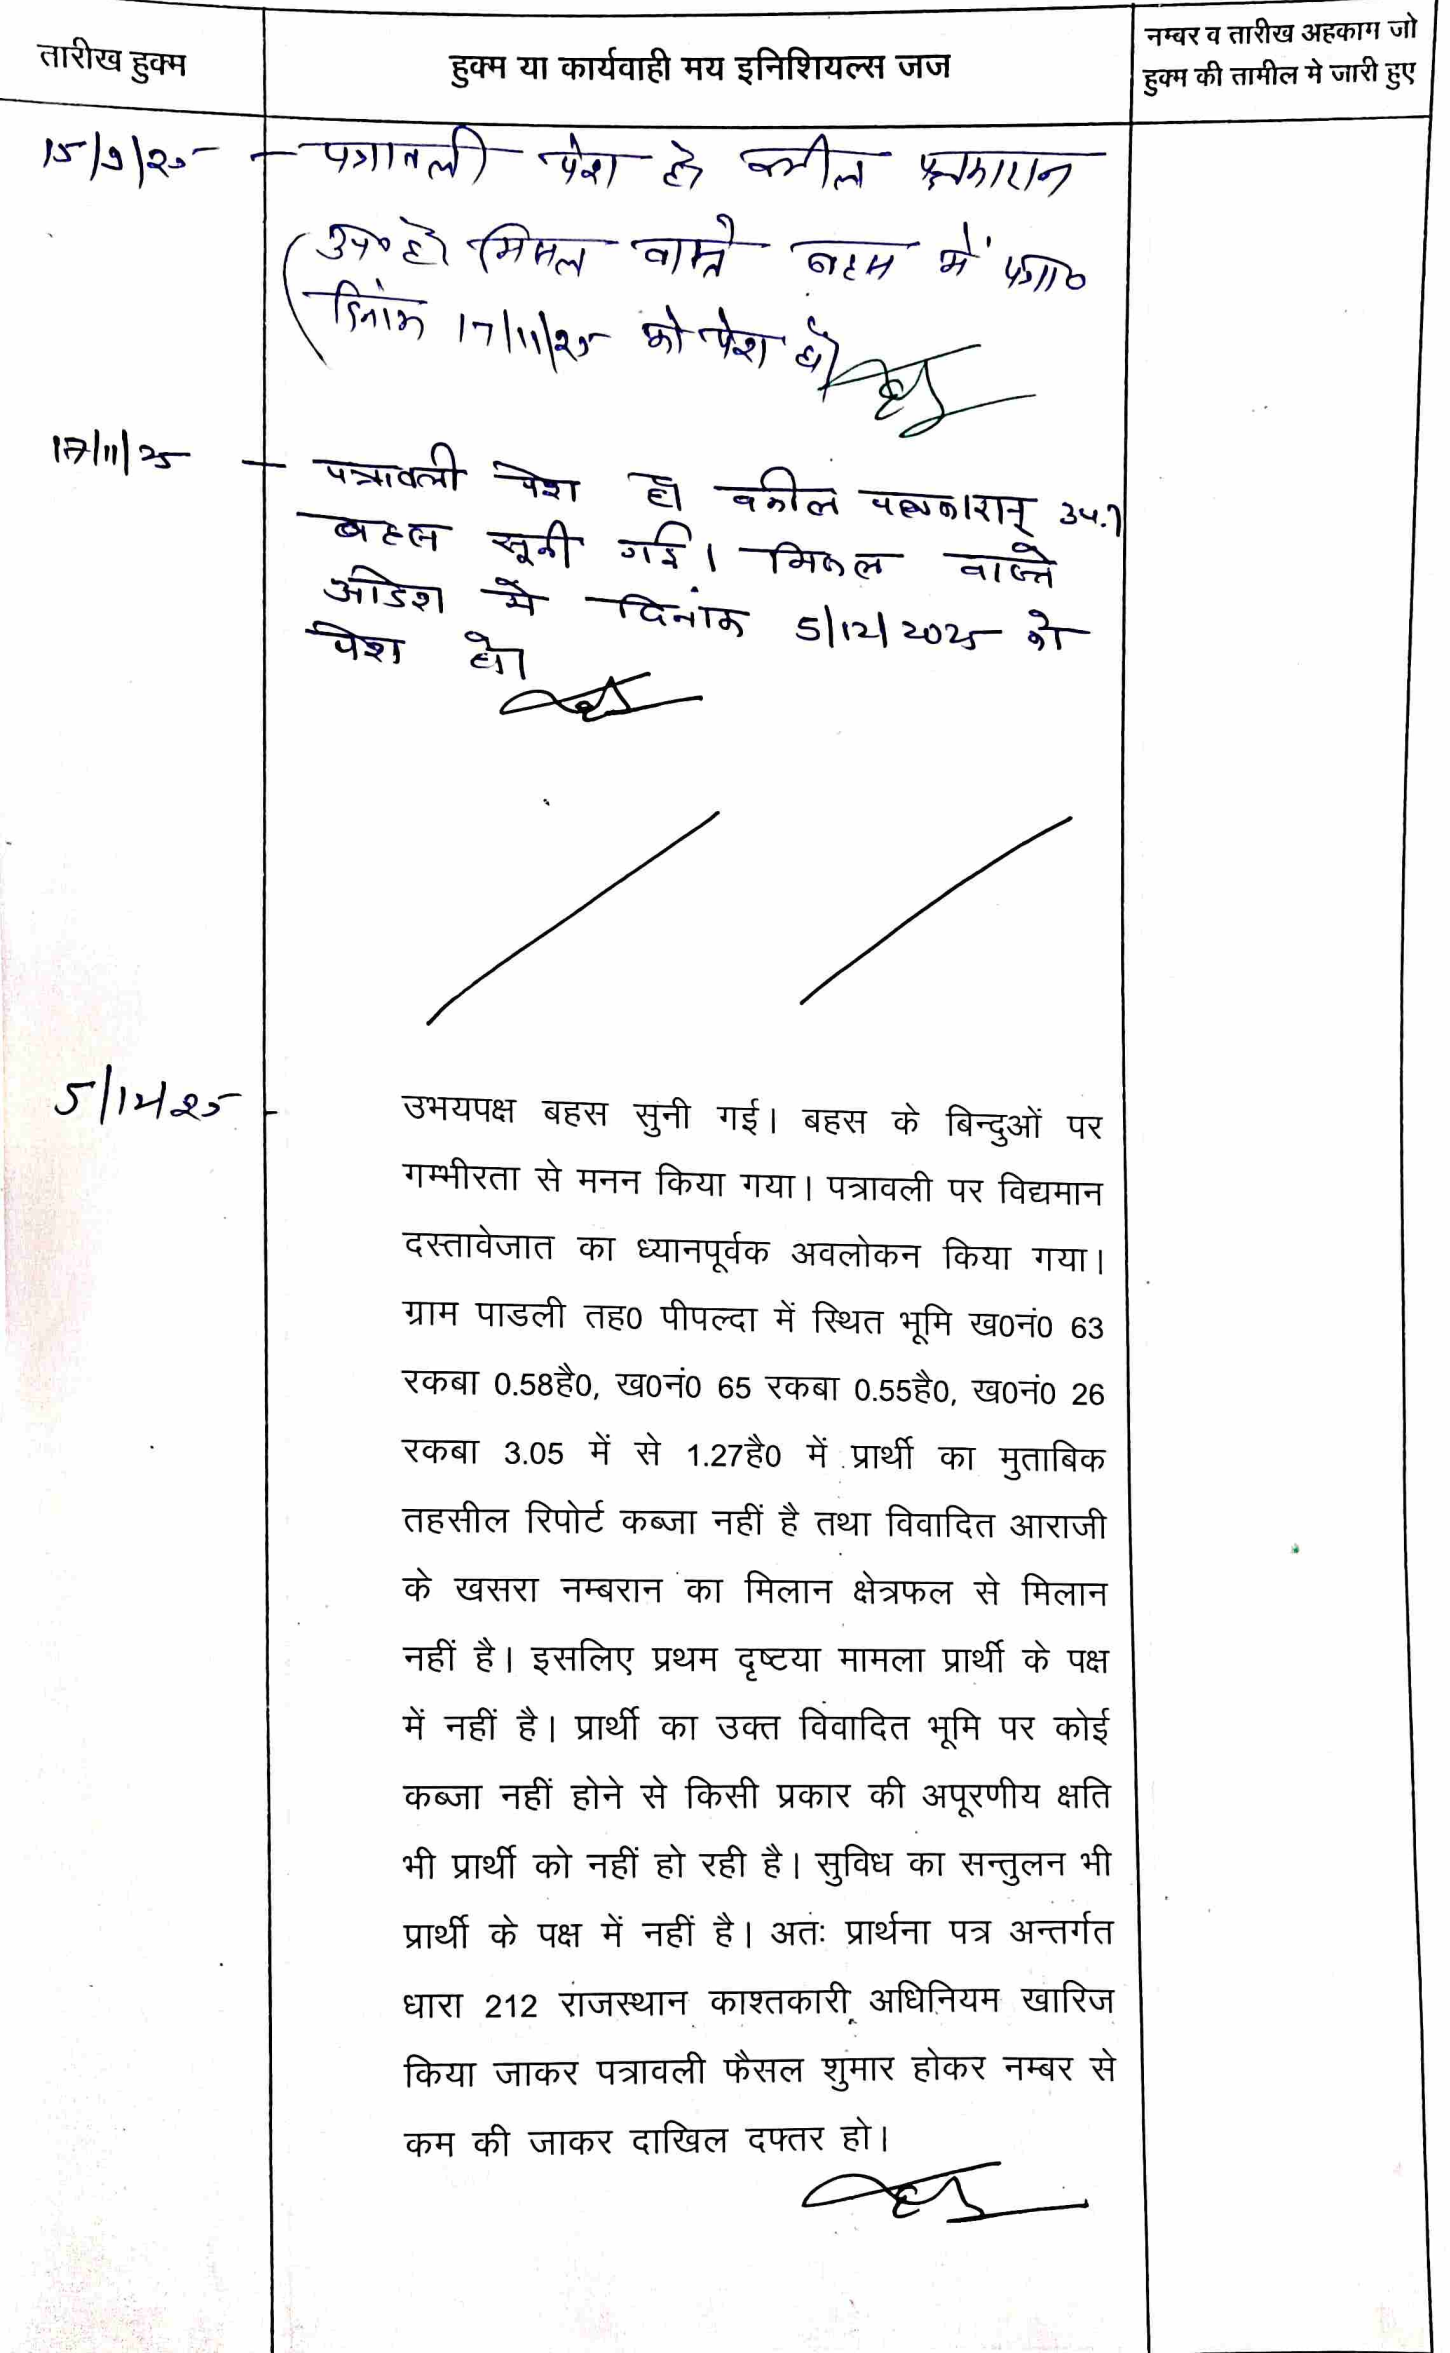 तारीख हुक्म
हुक्म या कार्यवाही मय इनिशियल्स जज
नम्बर व तारीख अहकाम जो
हुक्म की तामील मे जारी हुए
15/9/25 - पत्रावली पेश हो वकील पक्षकारान
उप० हो मिसल वास्ते बहस में
दिनांक 17/11/25 को पेश हो
17/11/25 - पत्रावली पेश हो वकील पक्षकारान् उप.।
बहस सूनी गई। मिसल वास्ते
आदेश में दिनांक 5/12/2025 को
पेश हो।
5/12/25 -
उभयपक्ष बहस सुनी गई। बहस के बिन्दुओं पर
गम्भीरता से मनन किया गया। पत्रावली पर विद्यमान
दस्तावेजात का ध्यानपूर्वक अवलोकन किया गया।
ग्राम पाडली तह0 पीपल्दा में स्थित भूमि ख0नं0 63
रकबा 0.58है0, ख0नं0 65 रकबा 0.55है0, ख0नं0 26
रकबा 3.05 में से 1.27है0 में प्रार्थी का मुताबिक
तहसील रिपोर्ट कब्जा नहीं है तथा विवादित आराजी
के खसरा नम्बरान का मिलान क्षेत्रफल से मिलान
नहीं है। इसलिए प्रथम दृष्टया मामला प्रार्थी के पक्ष
में नहीं है। प्रार्थी का उक्त विवादित भूमि पर कोई
कब्जा नहीं होने से किसी प्रकार की अपूरणीय क्षति
भी प्रार्थी को नहीं हो रही है। सुविध का सन्तुलन भी
प्रार्थी के पक्ष में नहीं है। अतः प्रार्थना पत्र अन्तर्गत
धारा 212 राजस्थान काश्तकारी अधिनियम खारिज
किया जाकर पत्रावली फैसल शुमार होकर नम्बर से
कम की जाकर दाखिल दफ्तर हो।